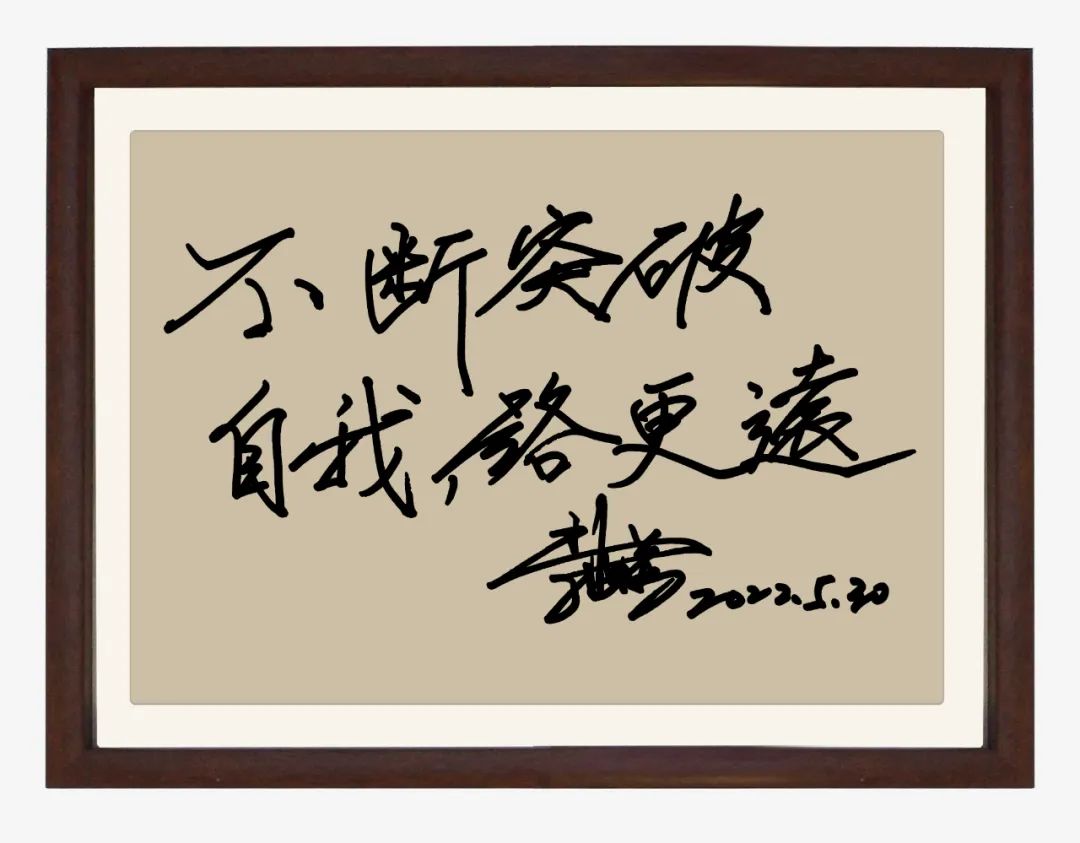 不断突破
自我,路更遠
2022.5.30